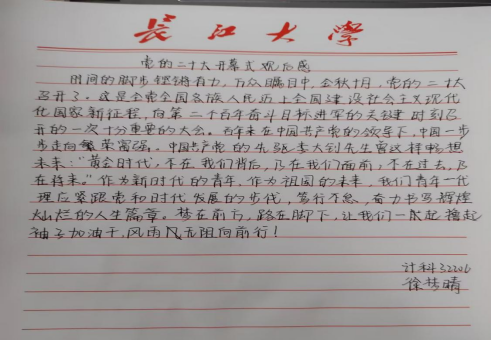 长江大学
党的二十大开幕式观后感
时间的脚步铿锵有力,万众瞩目中,金秋十月,党的二十大
召开了。这是全党全国各族人民历上全国建设社会主义现代
化国家新征程,向第二个百年奋斗目标进军的关键时刻召
开的一次十分重要的大会。百年来在中国共产党的领导下,中国一步
步走向繁荣富强。中国共产党的先驱李大钊先生曾这样畅想
未来:“黄金时代,不在我们背后,乃在我们面前,不在过去,乃
在将来。”作为新时代的青年,作为祖国的未来,我们青年一代
理应紧跟党和时代发展的步伐,笃行不怠,奋力书写辉煌
灿烂的人生篇章。梦在前方,路在脚下,让我们一起撸起
袖子加油干,风雨无阻向前行!
计科32206
徐梦晴